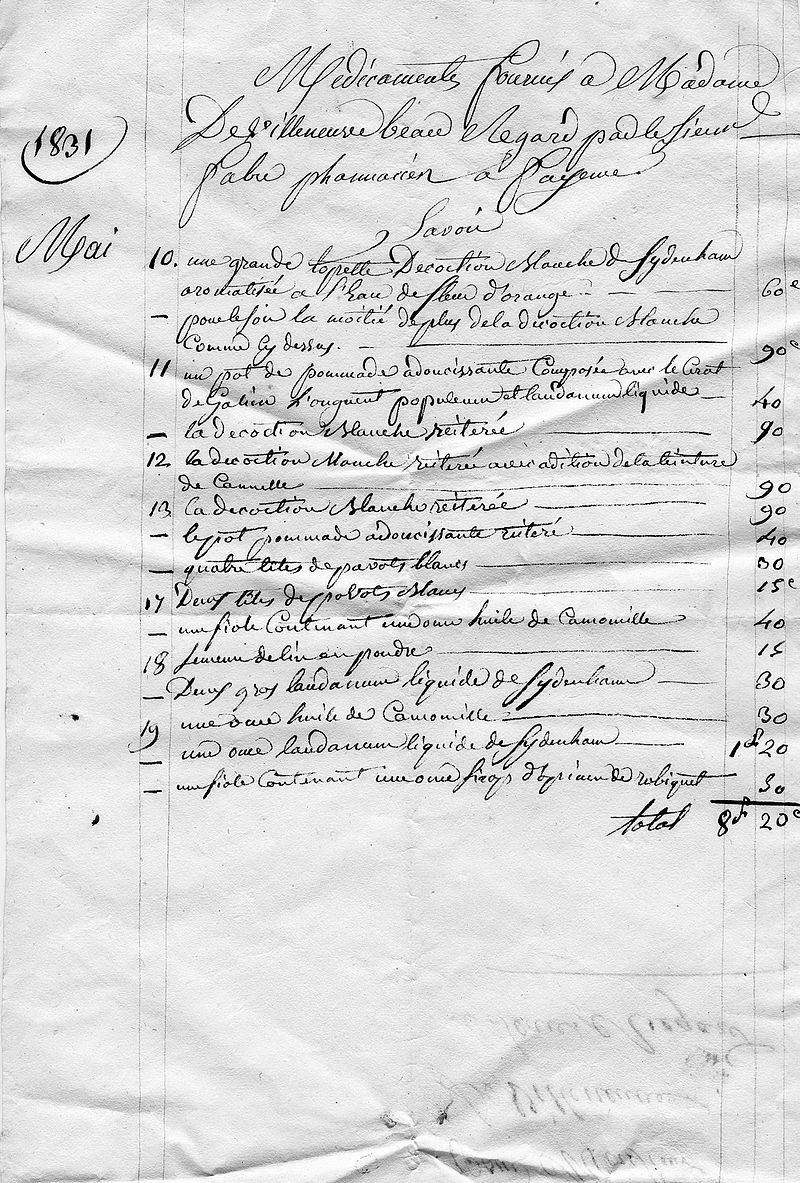 Médicaments fournis à Madame
De Villeneuve beau Regard par le Sieur
fabre pharmacien à fayence
1831
Savoir
Mai
10. une grande topette Decoction Blanche de Sydenham
aromatisée a l'Eau de fleur d'orange 60c
— pour le son la moitié de plus de la decoction Blanche
Comme cy dessus. 90c
11 un pot de pommade adoucissante Composée avec le Cerat
de Galien L'onguent populeum et laudanum liquide 40
— la decoction Blanche reiterée 90
12 la decoction Blanche reiterée avec adition de la teinture
de Cannelle 90
13 la decoction Blanche reiterée 90
— le pot pommade adoucissante reiteré 40
— quatre têtes de pavots blancs 30
17 Deux têtes de pavots Blancs 15c
— une fiole Contenant une once huile de Camomille 40
18 semence de lin en poudre 15
— Deux gros laudanum liquide de Sydenham 30
19 une once huile de Camomille 30
— une once laudanum liquide de Sydenham 1f 20
— une fiole Contenant une once sirop d'opium de robiquet 50
total 8f 20c